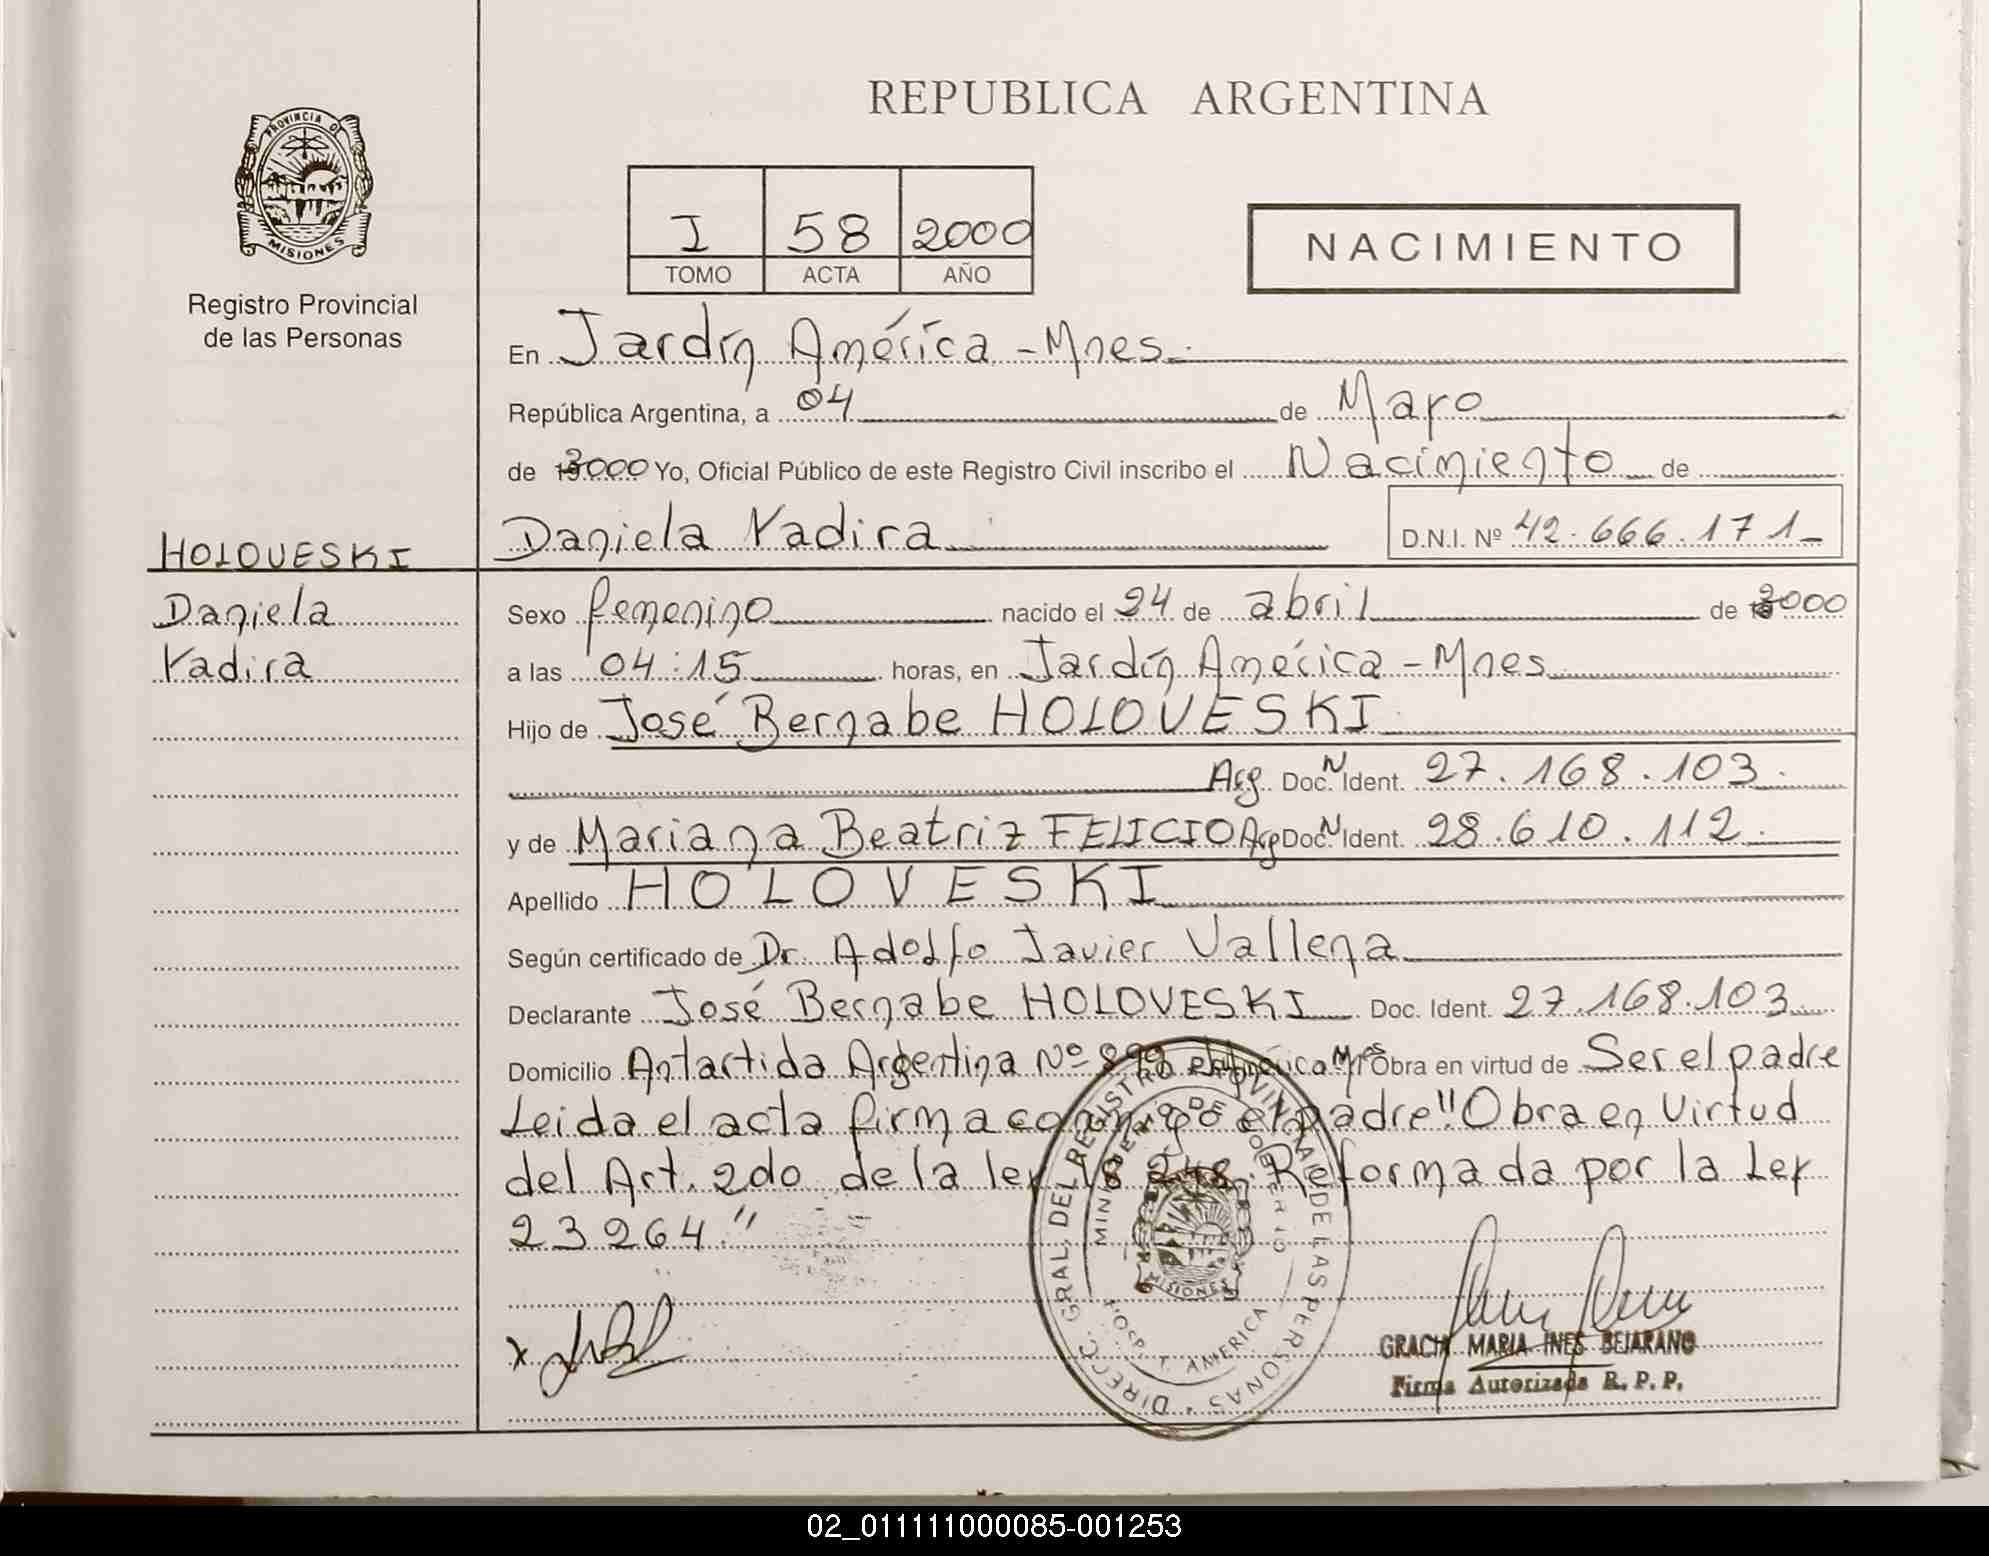 REPUBLICA ARGENTINA
PROVINCIA D
MISIONES
Registro Provincial
de las Personas
I 58 2000
TOMO ACTA AÑO
NACIMIENTO
En Jardín América - Mnes.
República Argentina, a 04 de Mayo
de 2000 Yo, Oficial Público de este Registro Civil inscribo el Nacimiento de
Daniela Yadira D.N.I. Nº 42.666.171
HOLOVESKI
Daniela
Yadira
Sexo femenino nacido el 24 de abril de 2000
a las 04:15 horas, en Jardín América - Mnes
Hijo de José Bernabe HOLOVESKI
Arg. Doc. N Ident. 27.168.103.
y de Mariana Beatriz FELICIO Arg Doc. N Ident. 28.610.112.
Apellido HOLOVESKI
Según certificado de Dr. Adolfo Javier Vallena
Declarante José Bernabe HOLOVESKI Doc. Ident. 27.168.103
Domicilio Antartida Argentina Nº 899 Mnes Obra en virtud de Ser el padre
Leida el acta firma conmigo el padre "Obra en Virtud
del Art. 2do de la ley 18 248 Reformada por la Ley
23264."
DIRECC. GRAL. DEL REGISTRO PROVINCIAL DE LAS PERSONAS
MINISTERIO DE GOBIERNO
MISIONES
HOSP. J. AMERICA
X
GRACIA MARIA INES BEJARANO
Firma Autorizada R. P. P.
02_011111000085-001253